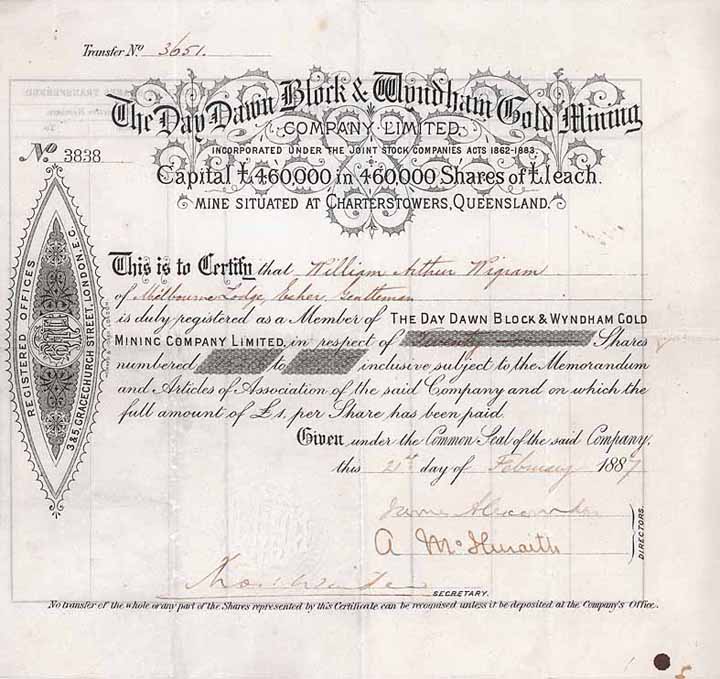 Transfer No. 3651.
The Day Dawn Block & Wyndham Gold Mining
COMPANY LIMITED.
INCORPORATED UNDER THE JOINT STOCK COMPANIES ACTS 1862-1883.
No 3838
Capital £460,000 in 460,000 Shares of £1 each.
MINE SITUATED AT CHARTERSTOWERS, QUEENSLAND.
REGISTERED OFFICES
3 & 5, GRACECHURCH STREET, LONDON, E.C.
This is to Certify that William Arthur Wigram
of Milbourne Lodge, Esher, Gentleman
is duly registered as a Member of THE DAY DAWN BLOCK & WYNDHAM GOLD
MINING COMPANY LIMITED, in respect of Twenty Shares
numbered to inclusive subject to the Memorandum
and Articles of Association of the said Company and on which the
full amount of £1, per Share has been paid.
Given under the Common Seal of the said Company,
this 21st day of February 1887
James Alexander
A McIlwraith
DIRECTORS.
SECRETARY.
No transfer of the whole or any part of the Shares represented by this Certificate can be recognised unless it be deposited at the Company's Office.